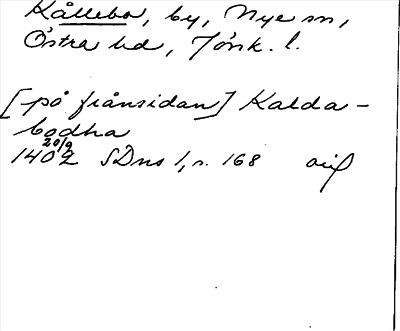 Kållebo, by, Nye sn,
Östra hd, Jönk. l.
[på frånsidan] Kalda-
bodha
20/9
1402 SDns 1, s. 168 orig